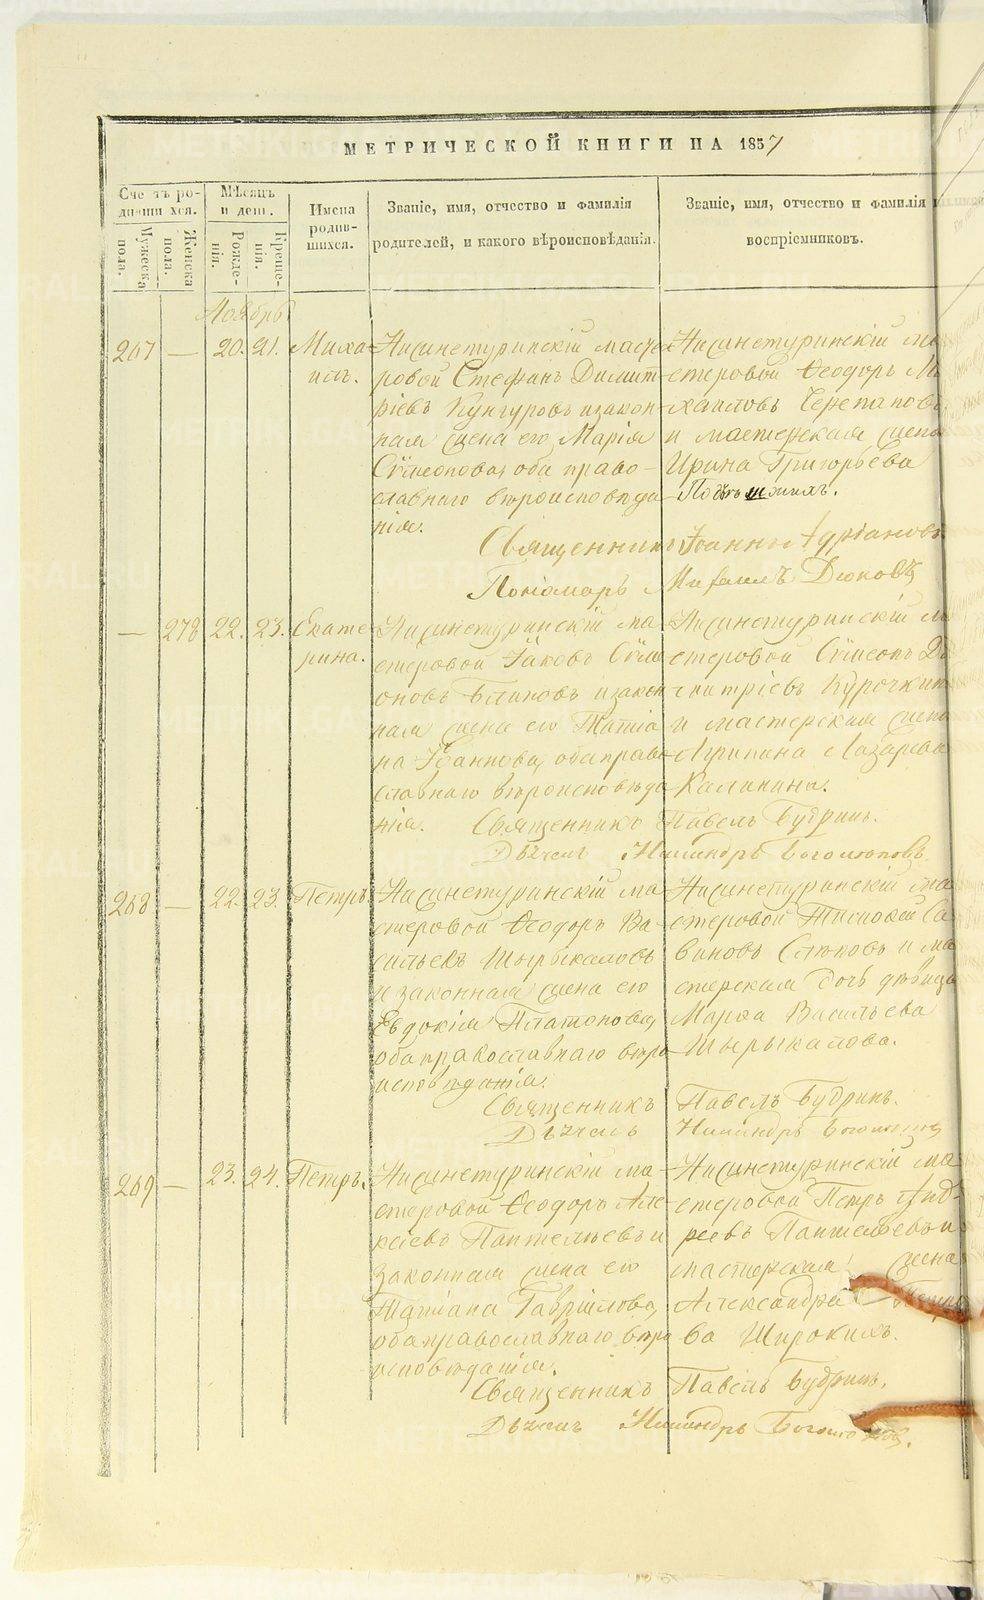 МЕТРИЧЕСКОЙ КНИГИ НА 1857
Счетъ родившихся.
Мужеска пола.
Женска пола.
Мѣсяцъ и день.
Рожденія.
Крещенія.
Имена родившихся.
Званіе, имя, отчество и фамилія
родителей, и какого вѣроисповѣданія.
Званіе, имя, отчество и фамилія
воспріемниковъ.
Ноябрь
267 — 20. 21. Миха-
илъ.
Нисинетуринскій масте-
ровой Стефанъ Димит-
ріевъ Кунгуровъ и закон-
ная жена его Марія
Сѵмеонова, оба право-
славнаго вѣроисповѣда
нія.
Нисинетуринскій ма
стеровой Ѳеодоръ Ми
хаиловъ Черепановъ
и мастерская жена
Ирина Григорьева
Священникъ Іоаннъ Адріановъ
Пономарь Михаилъ Дюковъ
— 278 22. 23. Екате
рина.
Нисинетуринскій ма
стеровой Іаковъ Сѵме
оновъ Блиновъ и закон
ная жена его Татіа
на Іоаннова, оба право
славнаго вѣроисповѣда
нія.
Нисинетуринскій ма
стеровой Сѵмеонъ Ди
митріевъ Курочкинъ
и мастерская жена
Агрипина Лазарева
Калинина.
Священникъ Павелъ Будринъ.
Дьячекъ
268 — 22. 23. Петръ.
Нисинетуринскій ма-
стеровой Ѳеодоръ Ва-
сильевъ Шырыкаловъ
и законная жена его
Евдокія Платонова,
оба православнаго вѣро
исповѣданія.
Нисинетуринскій ма
стеровой Тимоѳей Са
виновъ и ма
стерская дочь дѣвица
Марѳа Васильева
Шырыкалова.
Священникъ Павелъ Будринъ.
Дьячекъ
269 — 23. 24. Петръ.
Нисинетуринскій ма-
стеровой Ѳеодоръ Але-
ксѣевъ Пантелѣевъ и
законная жена его
Татіана Гавріилова,
оба православнаго вѣро
исповѣданія.
Нисинетуринскій ма
стеровой Петръ Анд-
реевъ Пантелѣевъ и
мастерская жена
Александра Петро
ва Широкихъ.
Священникъ Павелъ Будринъ.
Дьячекъ